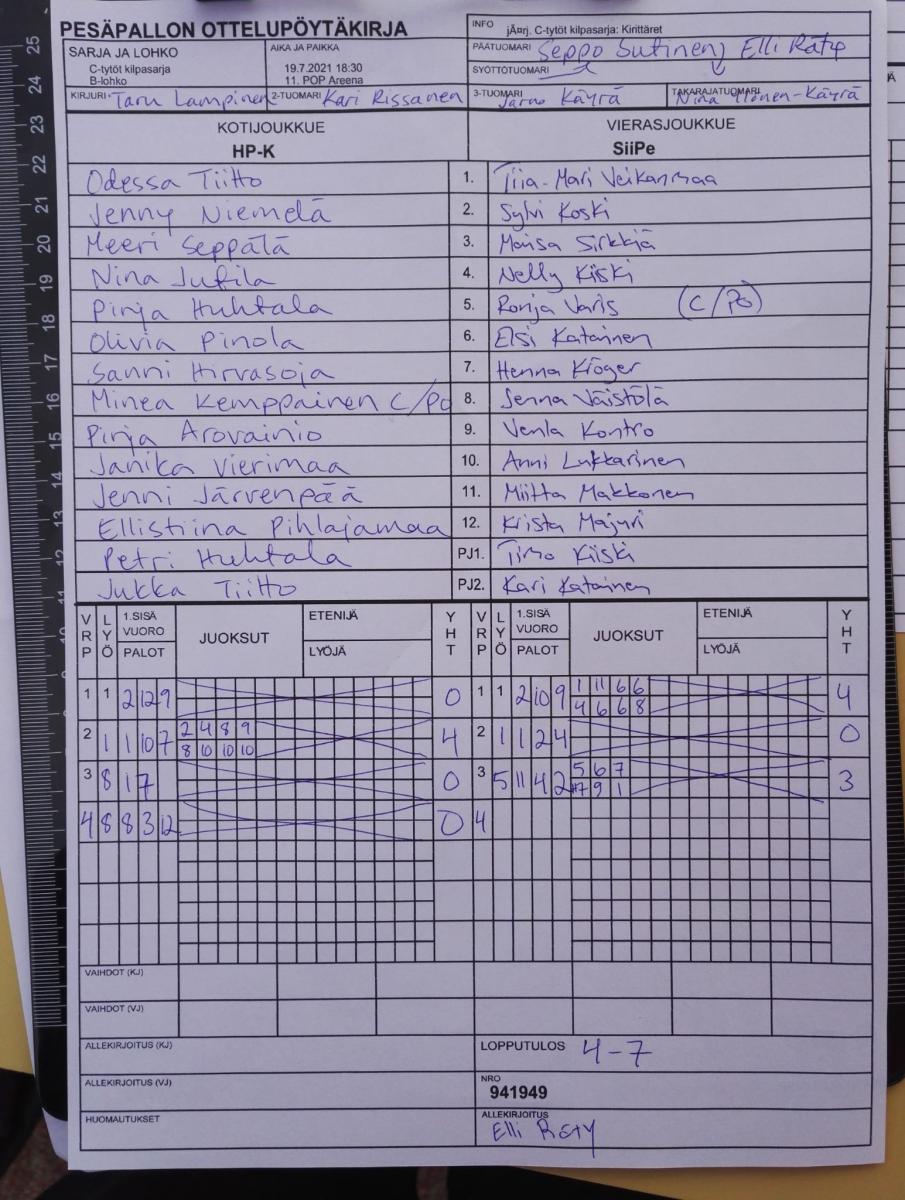 PESÄPALLON OTTELUPÖYTÄKIRJA
INFO jÃ¤rj. C-tytöt kilpasarja: Kirittäret
SARJA JA LOHKO
C-tytöt kilpasarja
B-lohko
AIKA JA PAIKKA
19.7.2021 18:30
11. POP Areena
PÄÄTUOMARI Seppo Sutinen, Elli Räty
SYÖTTÖTUOMARI
KIRJURI Taru Lampinen 2-TUOMARI Kari Rissanen 3-TUOMARI Jarno Käyrä TAKARAJATUOMARI Nina Ylönen-Käyrä
KOTIJOUKKUE VIERASJOUKKUE
HP-K SiiPe
Odessa Tiitto 1. Tiia-Mari Veikanmaa
Jenny Niemelä 2. Sylvi Koski
Meeri Seppälä 3. Sirkkiä
Nina Jutila 4. Nelly Kiiski
Pinja Huhtala 5. Ronja Varis (C/PO)
Olivia Pinola 6. Elsi Katainen
Sanni Hirvasoja 7. Henna Kröger
Minea Kemppainen C/PO 8. Jenna Väistölä
Pinja Arovainio 9. Venla Kontro
Janika Vierimaa 10. Anni Lukkarinen
Jenni Järvenpää 11. Miitta Makkonen
Ellistiina Pihlajamaa 12. Krista Majuri
Petri Huhtala PJ1. Timo Kiiski
Jukka Tiitto PJ2. Kari Katainen
VRP LYÖ 1.SISÄ VUORO PALOT JUOKSUT ETENIJÄ LYÖJÄ YHT VRP LYÖ 1.SISÄ VUORO PALOT JUOKSUT ETENIJÄ LYÖJÄ YHT
1 1 2 12 9 0 1 1 2 10 9 1 11 6 6 4
4 6 6 8
2 1 1 10 7 2 4 8 9 4 2 1 1 2 4 0
8 10 10 10
3 8 1 7 0 3 5 11 4 2 5 6 7 3
9 1
4 8 8 3 12 0 4
VAIHDOT (KJ)
VAIHDOT (VJ)
ALLEKIRJOITUS (KJ) LOPPUTULOS 4-7
ALLEKIRJOITUS (VJ) NRO
941949
HUOMAUTUKSET ALLEKIRJOITUS
Elli Räty
25
24
23
22
21
20
19
18
17
16
15
14
13
12
11
10